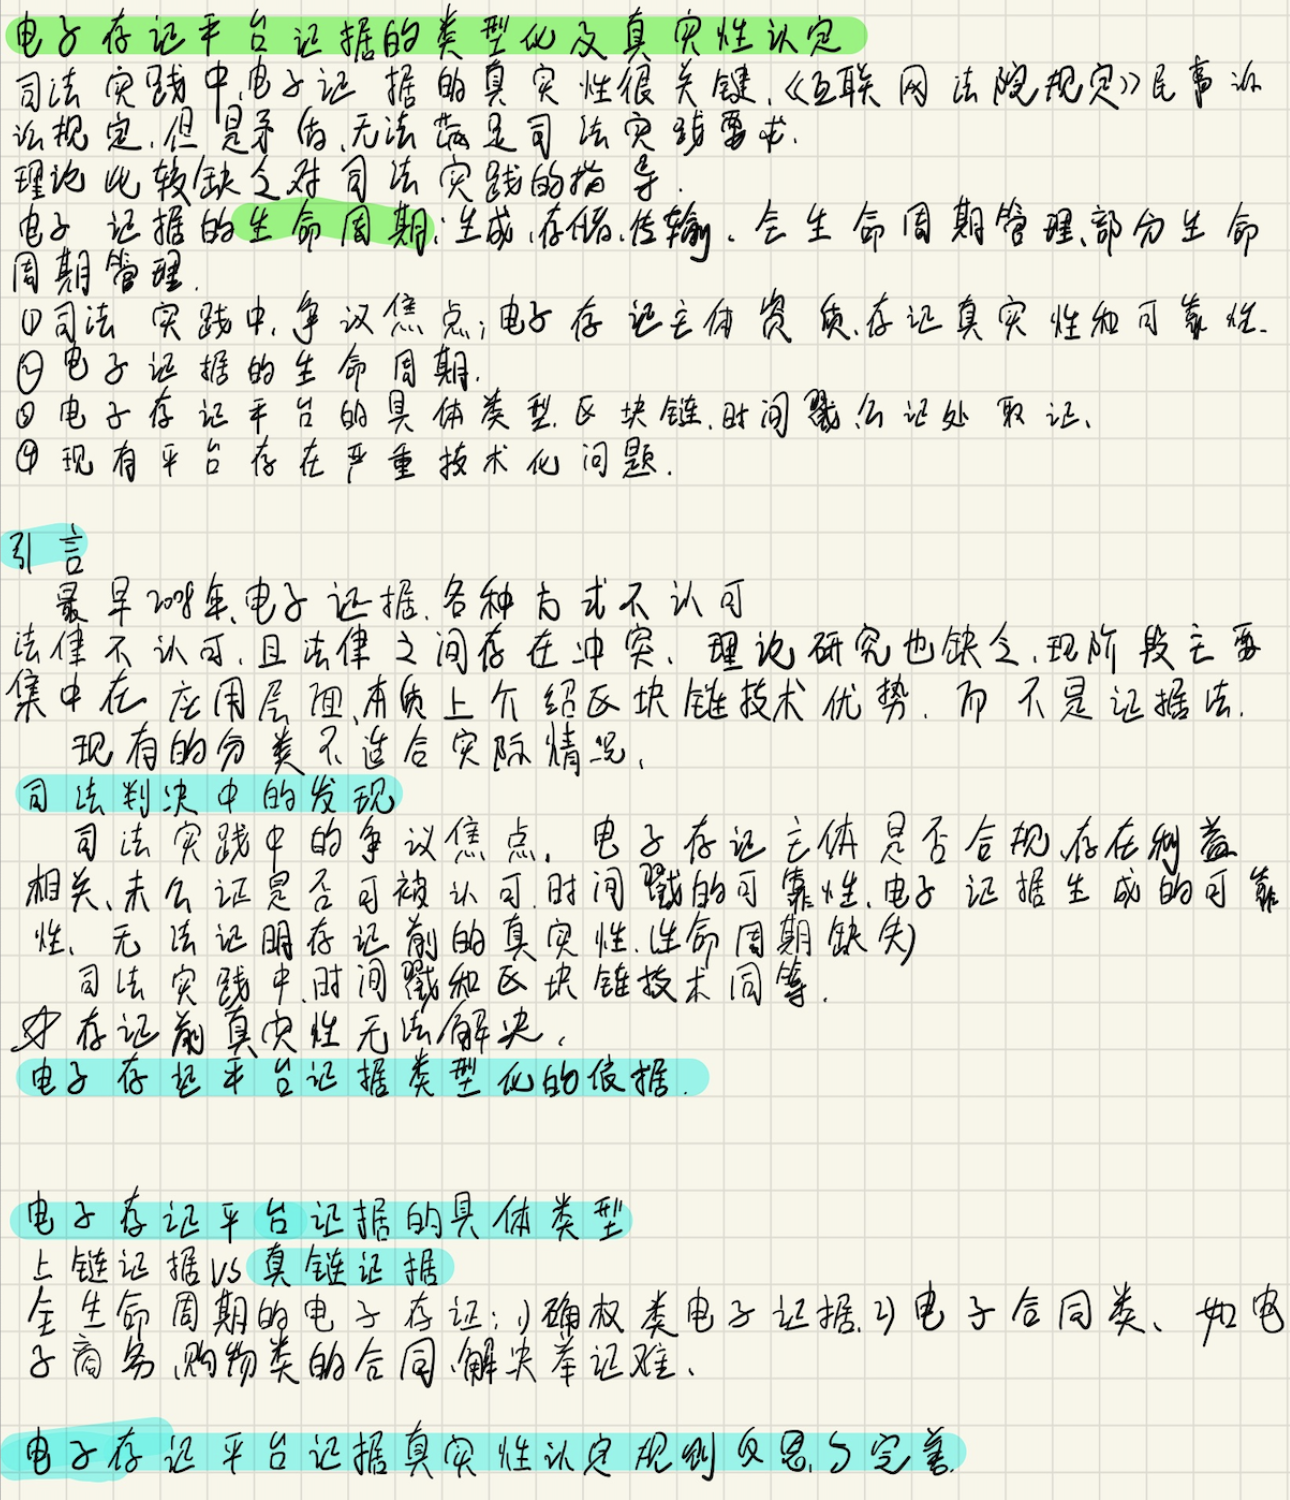 电子存证平台证据的类型化及真实性认定
司法实践中,电子证据的真实性很关键,《互联网法院规定》民事诉
讼规定,但是矛盾,无法满足司法实践要求.
理论比较缺乏对司法实践的指导.
电子证据的生命周期:生成、存储、传输、全生命周期管理、部分生命
周期管理.
①司法实践中,争议焦点;电子存证主体资质、存证真实性和可靠性.
②电子证据的生命周期.
③电子存证平台的具体类型.区块链.时间戳.公证处取证、
④现有平台存在严重技术化问题.
引言
最早2008年、电子证据.各种方式不认可
法律不认可,且法律之间存在冲突、理论研究也缺乏.现阶段主要
集中在应用层面、本质上介绍区块链技术优势.而不是证据法.
现有的分类不适合实际情况、
司法判决中的发现
司法实践中的争议焦点.电子存证主体是否合规、存在利益
相关、未公证是否可被认可.时间戳的可靠性.电子证据生成的可靠
性、无法证明存证前的真实性.(生命周期缺失)
司法实践中.时间戳和区块链技术同等.
☆存证前真实性无法解决.
电子存证平台证据类型化的依据.
电子存证平台证据的具体类型
上链证据VS真链证据
全生命周期的电子存证:1)确权类电子证据.2)电子合同类、如电
子商务、购物类的合同、解决举证难、
电子存证平台证据真实性认定规则反思与完善.